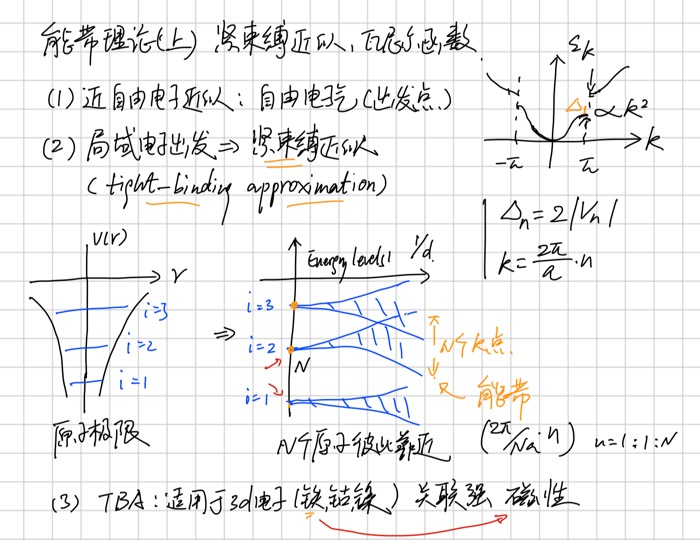 能带理论(上) 紧束缚近似、瓦尼尔函数
(1) 近自由电子近似: 自由电子气 (出发点)
(2) 局域电子出发 ⇒ 紧束缚近似
(tight-binding approximation)
εk
Δ
∝k²
k
-π
π
Δn = 2|Vn|
k = 2π/a · n
V(r)
r
i=3
i=2
i=1
原子极限
⇒
Energy levels
1/d
i=3
i=2
N
i=1
N个k点
能带
N个原子彼此靠近
(2π/Na · n) n=1:1:N
(3) TBA: 适用于3d电子(铁,钴,镍) 关联强 磁性